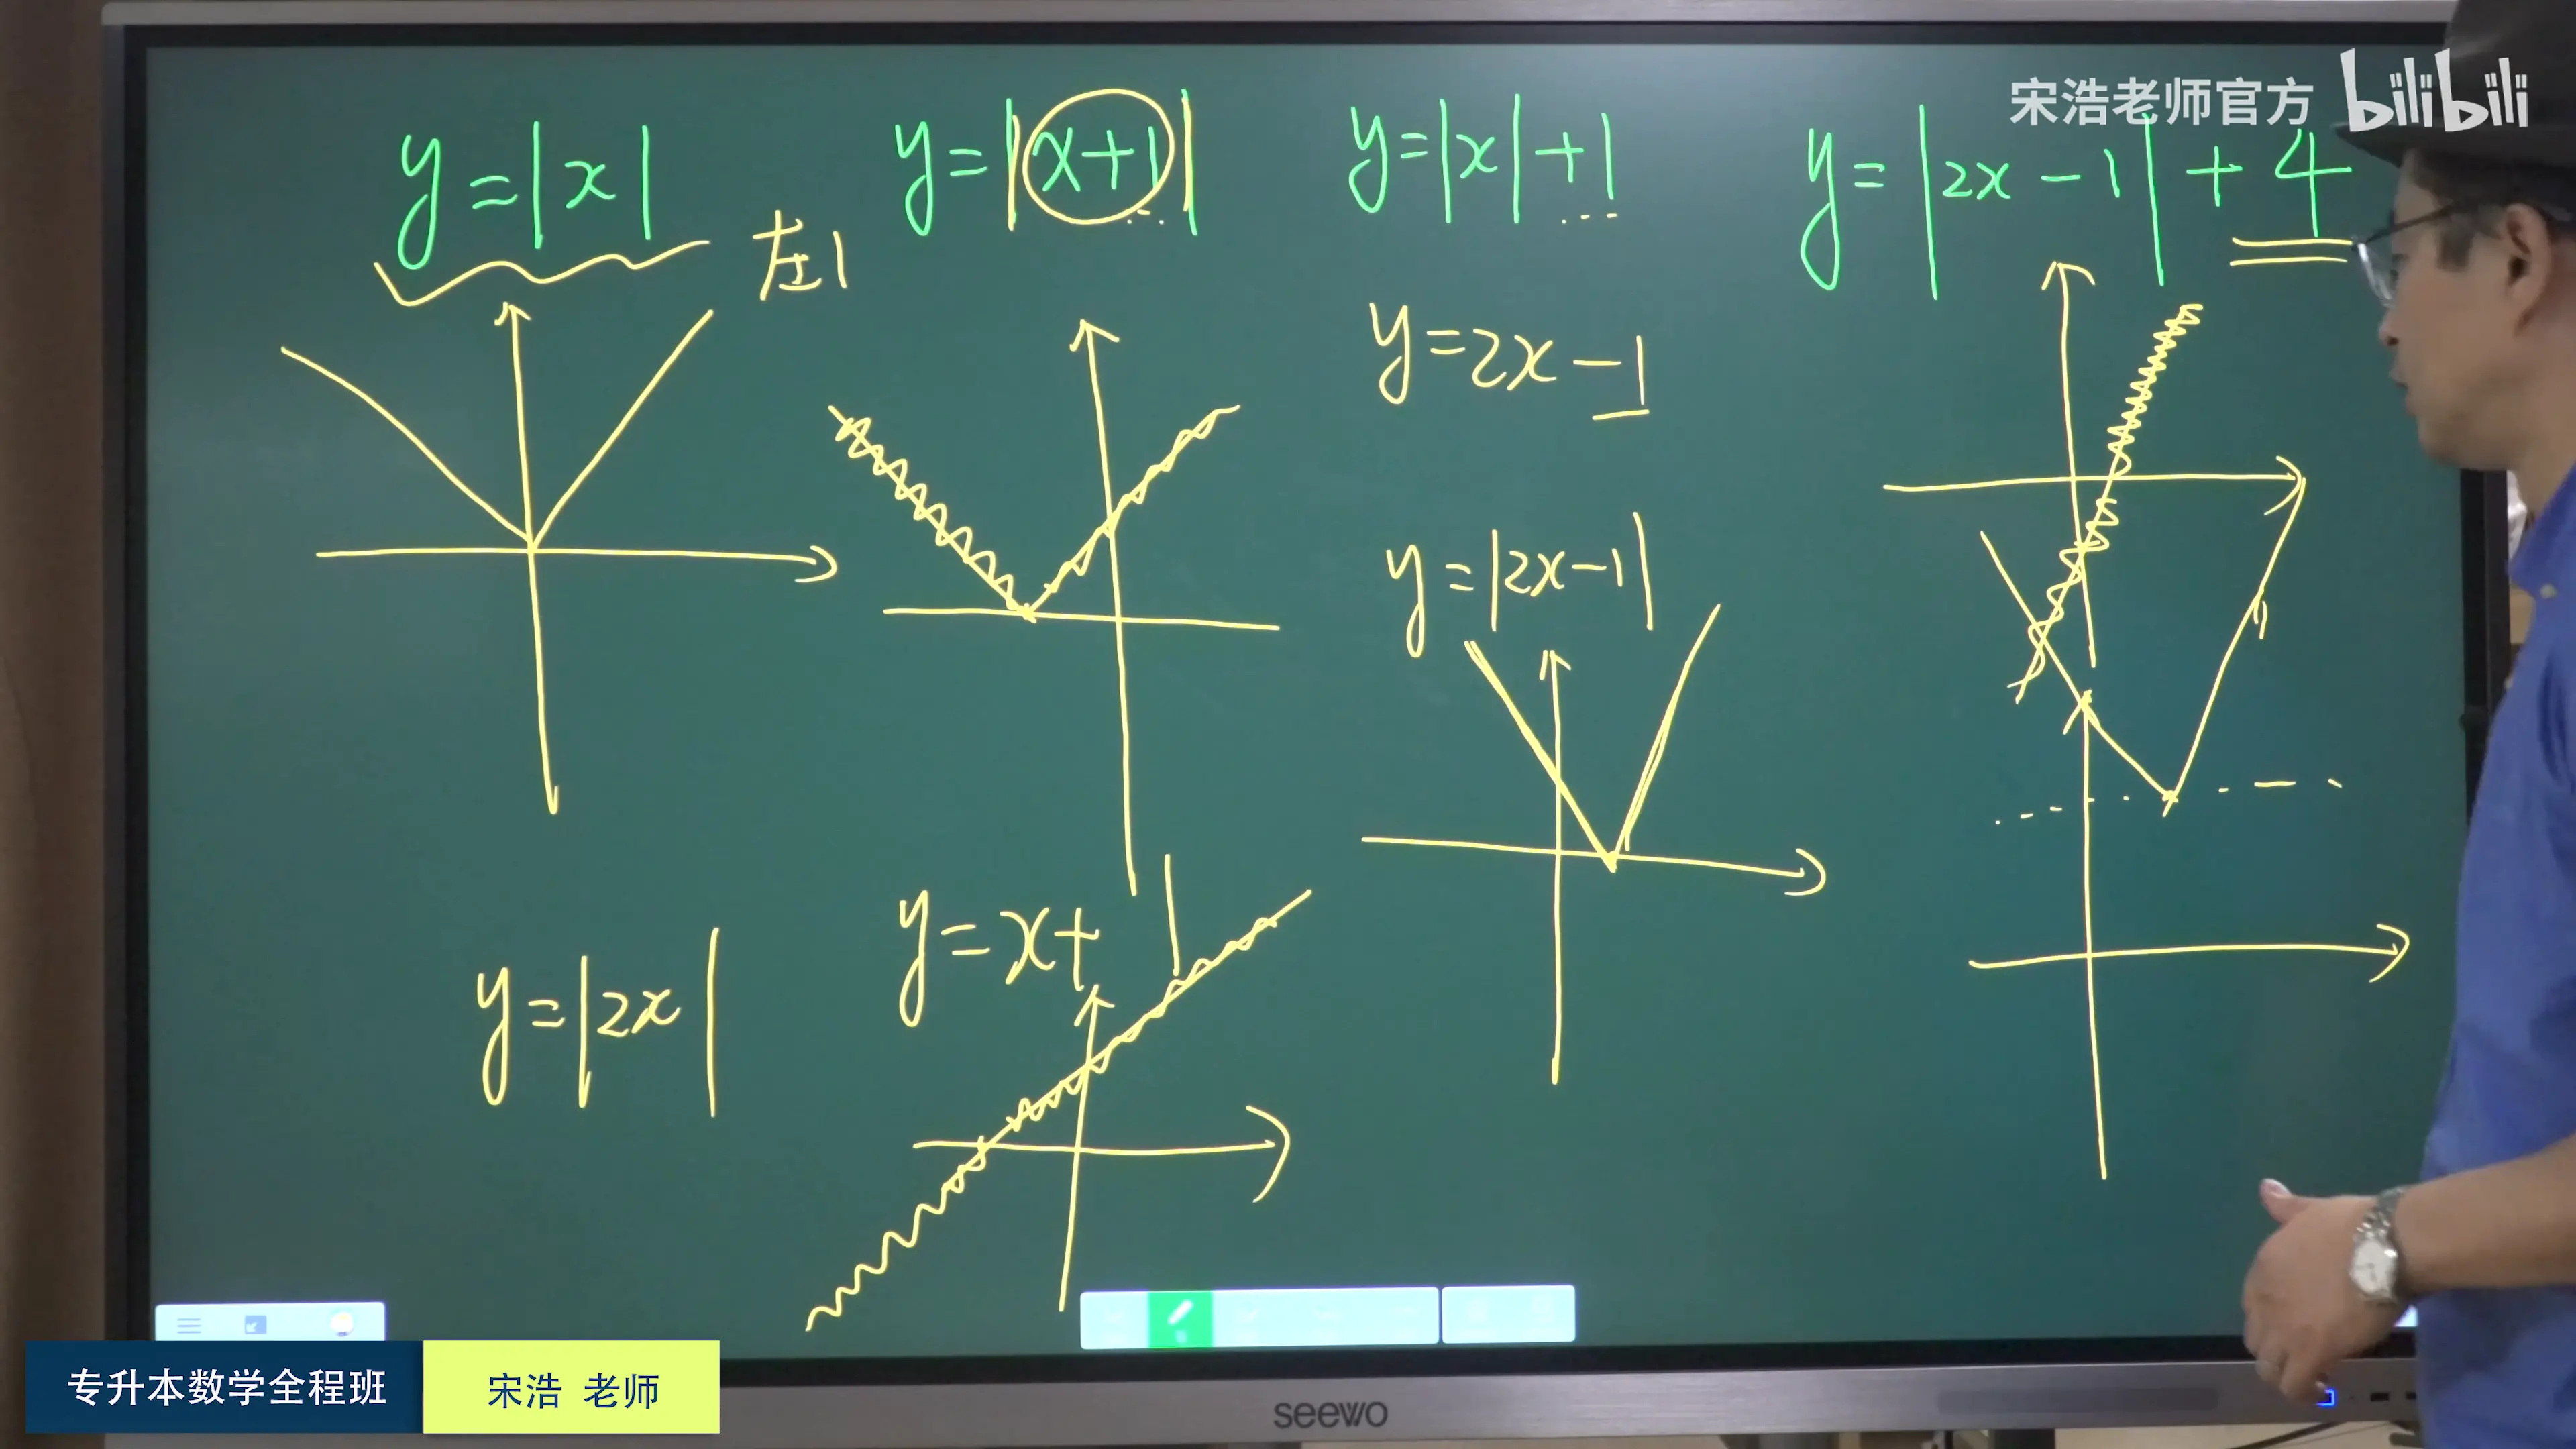 宋浩老师官方 bilibili
y=|x|
y=|x+1|
y=|x|+1
y=|2x-1|+4
左1
y=2x-1
y=|2x-1|
y=x+1
y=|2x|
专升本数学全程班
宋浩 老师
seewo